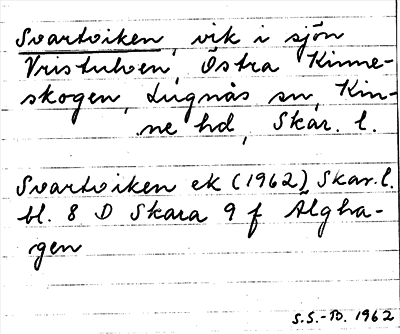 Svartviken, vik i sjön
Vristulven, Östra Kinne-
skogen, Lugnås sn, Kin-
ne hd, Skar. l.
Svartviken ek (1962), Skar. l.
bl. 8 D Skara 9 f Algha-
gen
S.S.-B. 1962